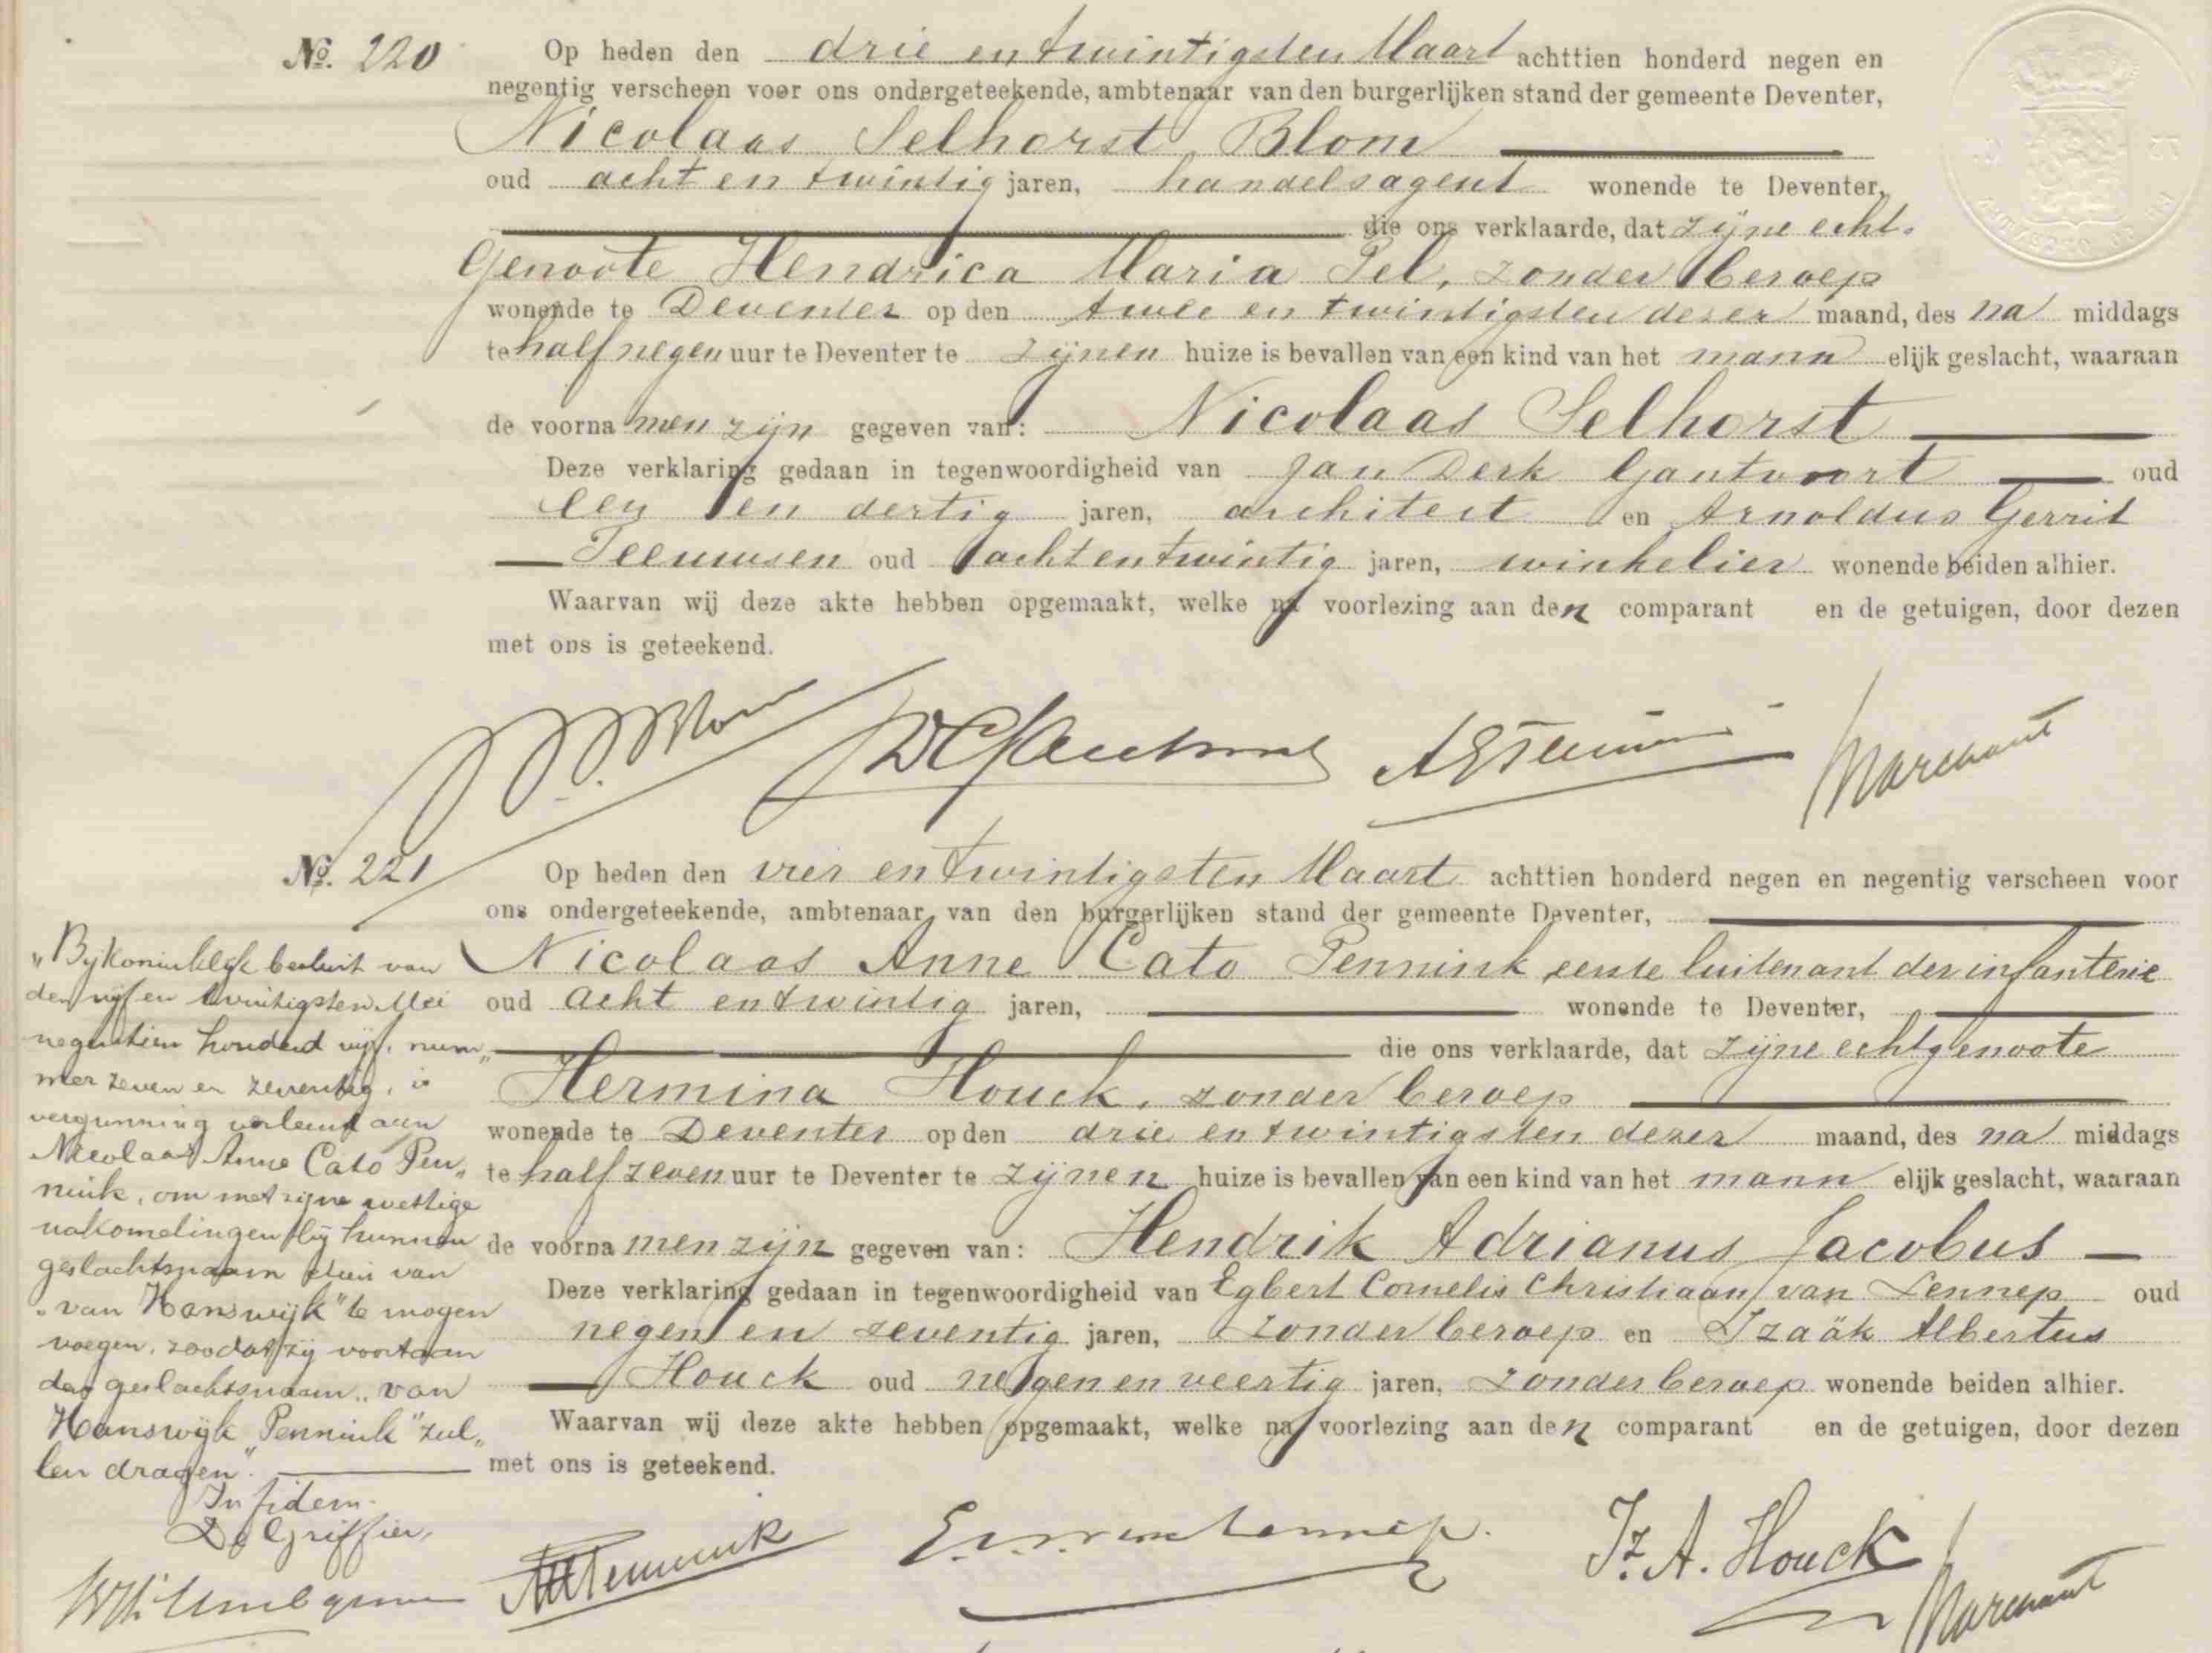 No. 220
Op heden den drie en twintigsten Maart achttien honderd negen en
negentig verscheen voor ons ondergeteekende, ambtenaar van den burgerlijken stand der gemeente Deventer,
Nicolaas Selhorst Blom
oud acht en twintig jaren, handelsagent wonende te Deventer,
die ons verklaarde, dat zijne echt-
genoote Hendrica Maria Pel, zonder beroep
wonende te Deventer op den twee en twintigsten dezer maand, des na middags
te half negen uur te Deventer te zijnen huize is bevallen van een kind van het mann elijk geslacht, waaraan
de voorna men zijn gegeven van: Nicolaas Selhorst
Deze verklaring gedaan in tegenwoordigheid van Jan Derk Gantvoort oud
een en dertig jaren, architect en Arnoldus Gerrit
Teeuwsen oud acht en twintig jaren, winkelier wonende beiden alhier.
Waarvan wij deze akte hebben opgemaakt, welke na voorlezing aan den comparant en de getuigen, door dezen
met ons is geteekend.
Blom
Marchant
No. 221
Op heden den vier en twintigsten Maart achttien honderd negen en negentig verscheen voor
ons ondergeteekende, ambtenaar van den burgerlijken stand der gemeente Deventer,
Nicolaas Anne Cato Pennink eerste luitenant der infanterie
oud acht en twintig jaren, wonende te Deventer,
die ons verklaarde, dat zijne echtgenoote
Hermina Houck, zonder beroep
wonende te Deventer op den drie en twintigsten dezer maand, des na middags
te half zeven uur te Deventer te zijnen huize is bevallen van een kind van het mann elijk geslacht, waaraan
de voorna men zijn gegeven van: Hendrik Adrianus Jacobus
Deze verklaring gedaan in tegenwoordigheid van Egbert Cornelis Christiaan van Lennep oud
negen en zeventig jaren, zonder beroep en Izaäk Albertus
Houck oud negen en veertig jaren, zonder beroep wonende beiden alhier.
Waarvan wij deze akte hebben opgemaakt, welke na voorlezing aan den comparant en de getuigen, door dezen
met ons is geteekend.
"Bij Koninklijk besluit van
den vijf en twintigsten Mei
negentien honderd vijf, num„
mer zeven en zeventig, is
vergunning verleend aan
Nicolaas Anne Cato Pen„
nink, om met zijne wettige
nakomelingen bij hunnen
geslachtsnaam dien van
"van Hanswijk" te mogen
voegen, zoodat zij voortaan
den geslachtsnaam "van
Hanswijk Pennink" zul„
len dragen".
In fidem
De Griffier,
Pennink
van Lennep
Iz. A. Houck
Marchant